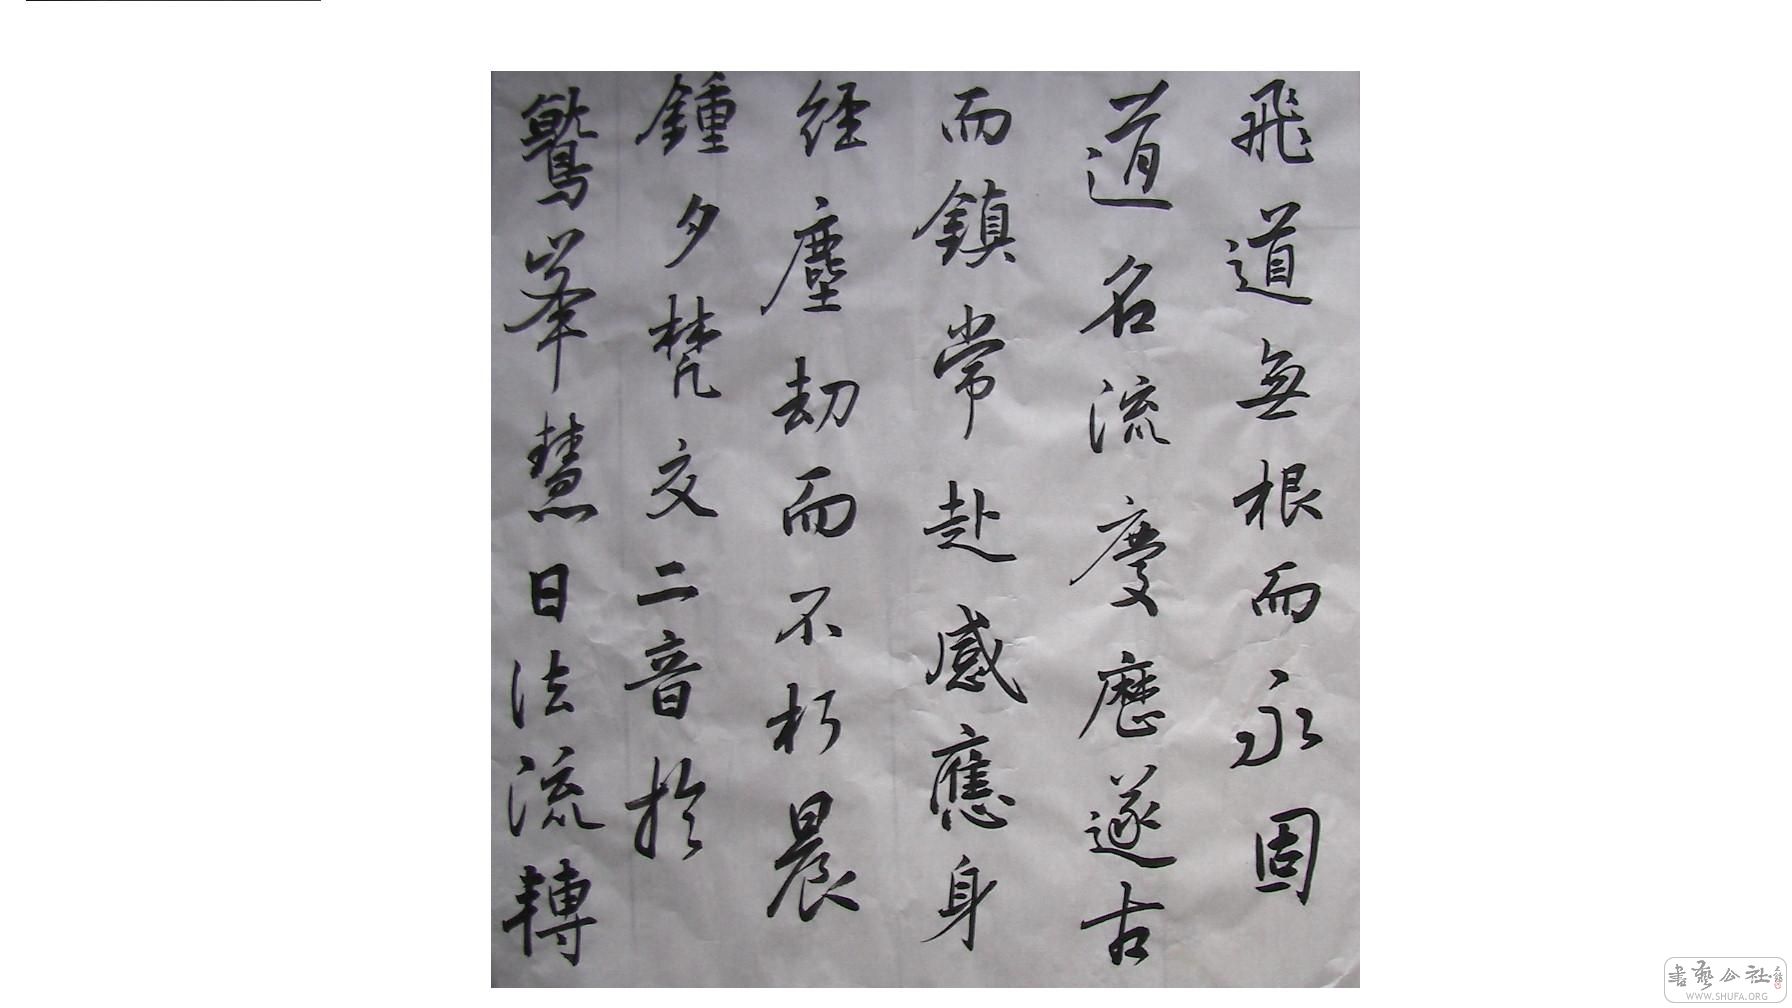 飛道無根而永固
道名流慶歷遂古
而鎮常赴感應身
經塵劫而不朽晨
鍾夕梵交二音於
鷲峯慧日法流轉
書藝公社
WWW.SHUFA.ORG